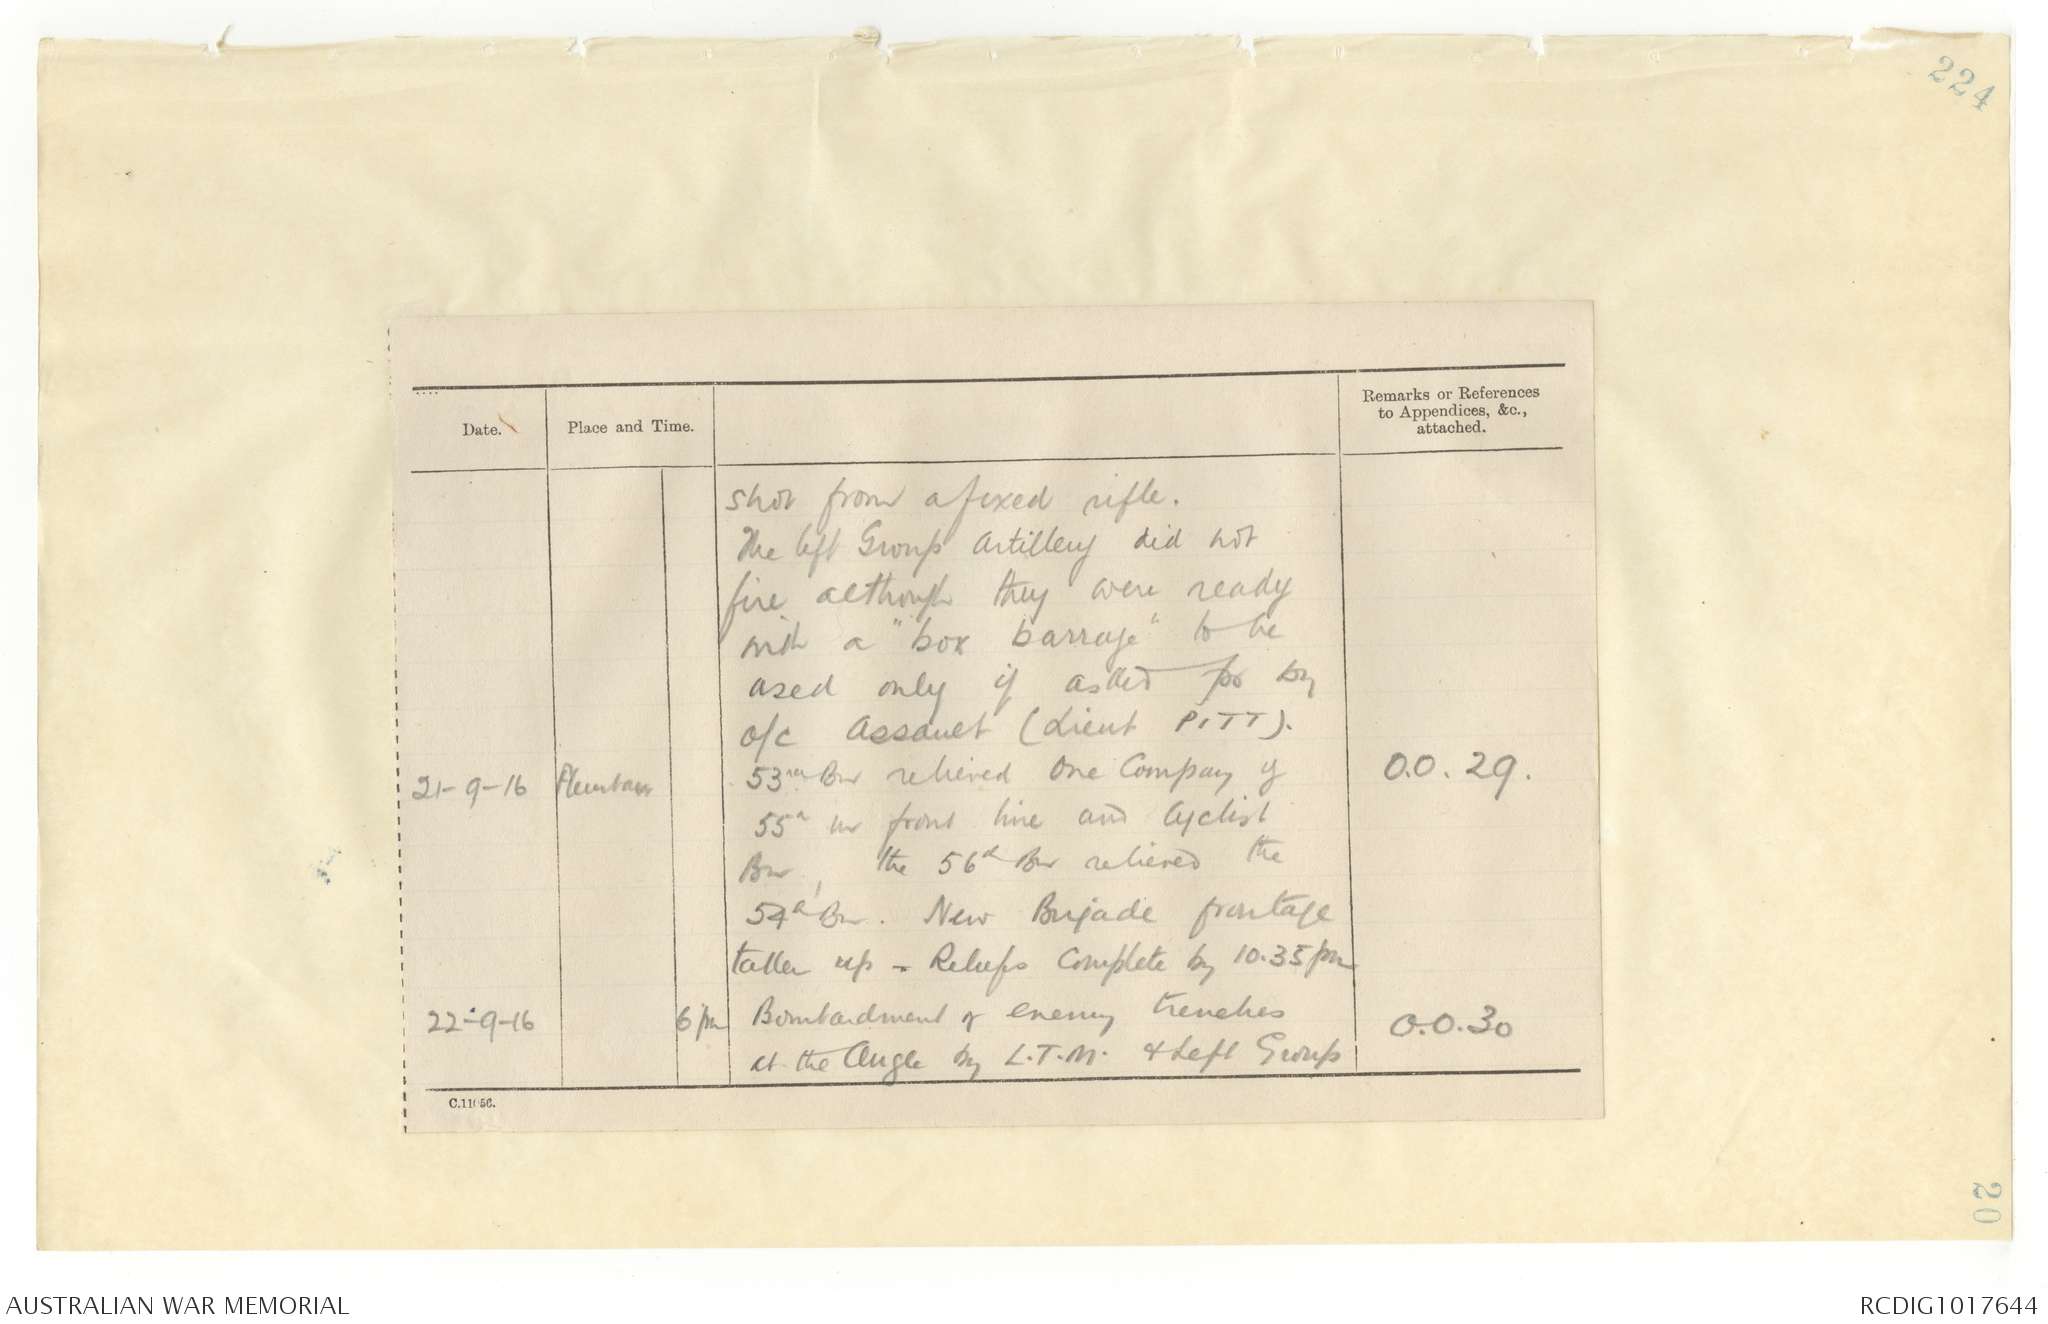 224
Date.
Place and Time.
Remarks or References
to Appendices, &c.,
attached.
shot from a fixed rifle.
The left Group Artillery did not
fire although they were ready
with a "box barrage" to be
used only if asked for by
o/c Assault (Lieut PITT).
21-9-16 Fleurbaix 53rd Bn relieved One Company of O.O. 29.
55th in front line and Cyclist
Bn, the 56th Bn relieved the
54th Bn. New Brigade frontage
taken up - Reliefs Complete by 10.35 pm
22-9-16 6 pm Bombardment of enemy trenches O.O.30
at the Angle by L.T.M. & Left Group
C.11056.
20
AUSTRALIAN WAR MEMORIAL
RCDIG1017644